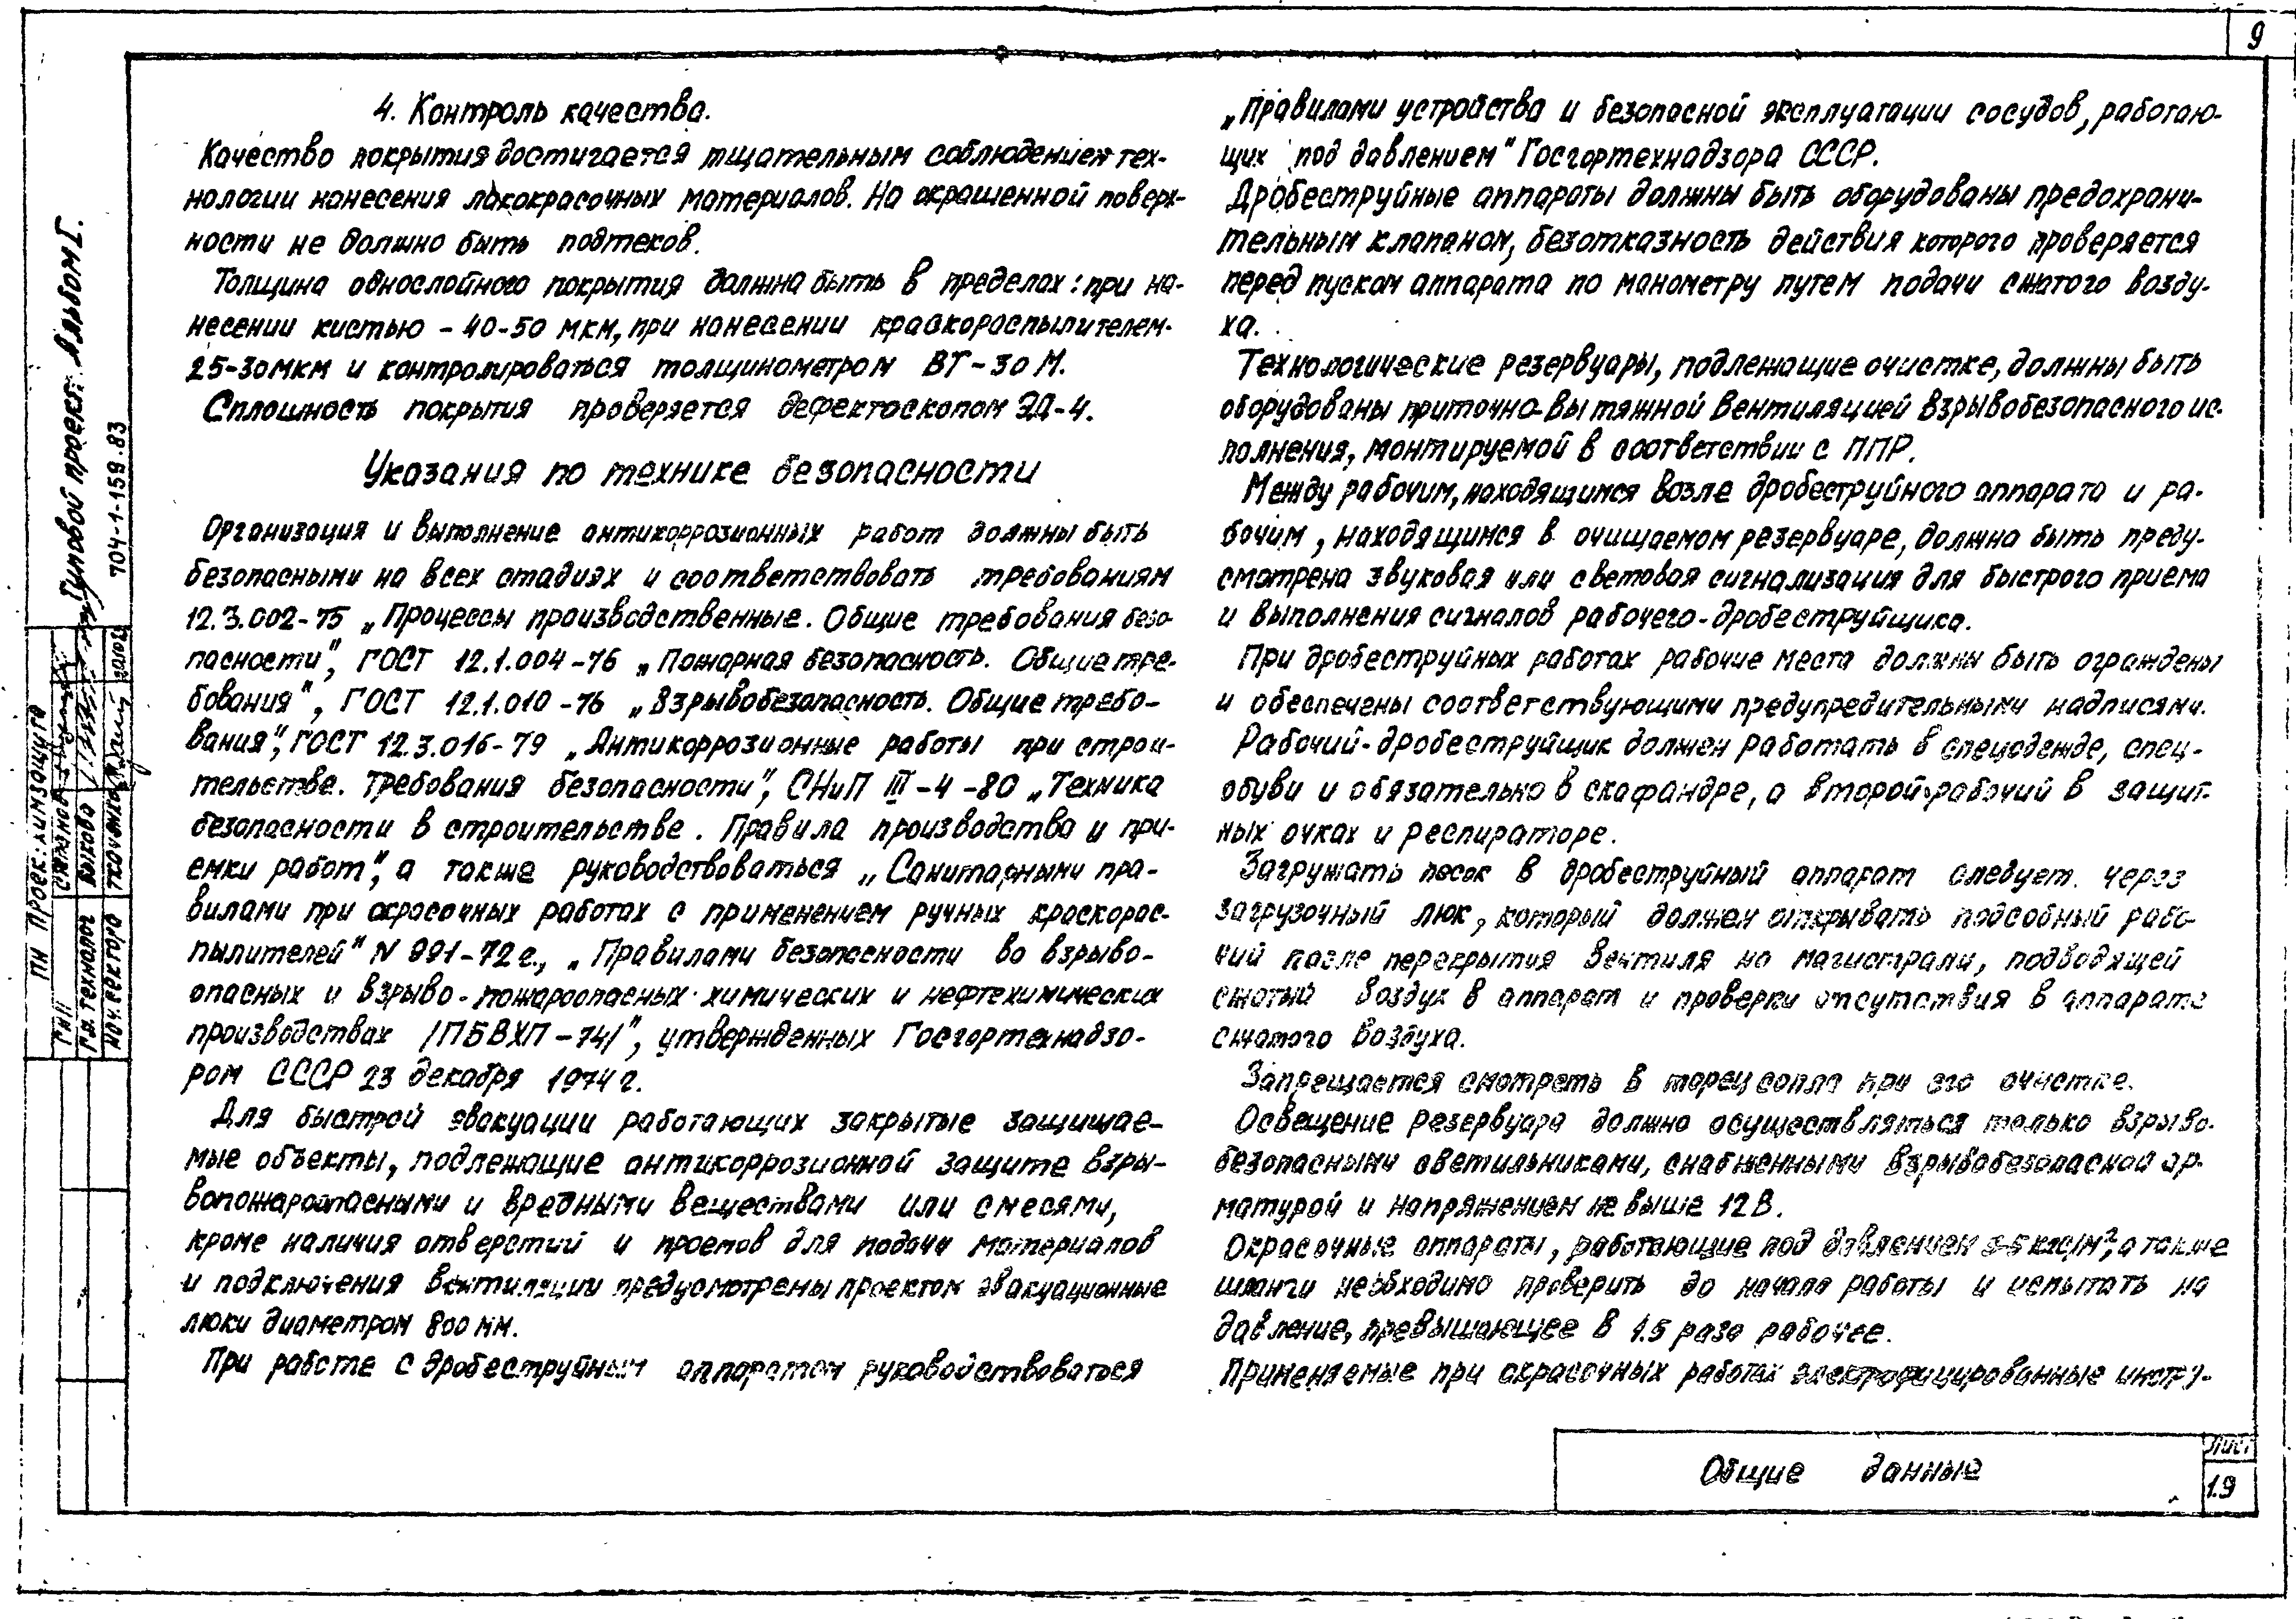 9
4. Контроль качества.
Качество покрытия достигается тщательным соблюдением тех-
нологии нанесения лакокрасочных материалов. На окрашенной поверх-
ности не должно быть подтеков.
Толщина однослойного покрытия должна быть в пределах: при на-
несении кистью - 40-50 мкм, при нанесении краскораспылителем-
25-30мкм и контролироваться толщинометром ВТ-30 М.
Сплошность покрытия проверяется дефектоскопом ЭД-4.
Указания по технике безопасности
Организация и выполнение антикоррозионных работ должны быть
безопасными на всех стадиях и соответствовать требованиям
12.3.002-75 „Процессы производственные. Общие требования безо-
пасности", ГОСТ 12.1.004-76 „Пожарная безопасность. Общие тре-
бования", ГОСТ 12.1.010-76 „Взрывобезопасность. Общие требо-
вания", ГОСТ 12.3.016-79 „Антикоррозионные работы при строи-
тельстве. Требования безопасности", СНиП III-4-80 „Техника
безопасности в строительстве. Правила производства и при-
емки работ", а также руководствоваться „Санитарными пра-
вилами при окрасочных работах с применением ручных краскорас-
пылителей" N 991-72г., „Правилами безопасности во взрыво-
опасных и взрыво-пожароопасных химических и нефтехимических
производствах /ПБВХП-74/", утвержденных Госгортехнадзо-
ром СССР 23 декабря 1974г.
Для быстрой эвакуации работающих закрытые защищае-
мые объекты, подлежащие антикоррозионной защите взры-
вопожароопасными и вредными веществами или смесями,
кроме наличия отверстий и проемов для подачи материалов
и подключения вентиляции предусмотрены проектом эвакуационные
люки диаметром 800 мм.
При работе с дробеструйным аппаратом руководствоваться
„Правилами устройства и безопасной эксплуатации сосудов, работаю-
щих под давлением" Госгортехнадзора СССР.
Дробеструйные аппараты должны быть оборудованы предохрани-
тельным клапаном, безотказность действия которого проверяется
перед пуском аппарата по манометру путем подачи сжатого возду-
ха.
Технологические резервуары, подлежащие очистке, должны быть
оборудованы приточно-вытяжной вентиляцией взрывобезопасного ис-
полнения, монтируемой в соответствии с ППР.
Между рабочим, находящимся возле дробеструйного аппарата и ра-
бочим, находящимся в очищаемом резервуаре, должна быть преду-
смотрена звуковая или световая сигнализация для быстрого приема
и выполнения сигналов рабочего-дробеструйщика.
При дробеструйных работах рабочие места должны быть ограждены
и обеспечены соответствующими предупредительными надписями.
Рабочий-дробеструйщик должен работать в спецодежде, спец-
обуви и обязательно в скафандре, а второй рабочий в защит-
ных очках и респираторе.
Загружать песок в дробеструйный аппарат следует через
загрузочный люк, который должен открывать подсобный рабо-
чий после перекрытия вентиля на магистрали, подводящей
сжатый воздух в аппарат и проверки отсутствия в аппарате
сжатого воздуха.
Запрещается смотреть в торец сопла при его очистке.
Освещение резервуара должно осуществляться только взрыво-
безопасными светильниками, снабженными взрывобезопасной ар-
матурой и напряжением не выше 12В.
Окрасочные аппараты, работающие под давлением 3-5 кгс/м², а также
шланги необходимо проверить до начала работы и испытать на
давление, превышающее в 1.5 раза рабочее.
Применяемые при окрасочных работах электрофицированные инстру-
Общие данные
Лист
1.9
Типовой проект. Альбом I.
704-1-159.83
ПИ Проек.химзащита
ГИП
Гл. технолог Быкова
Нач. сектора Ткаченко